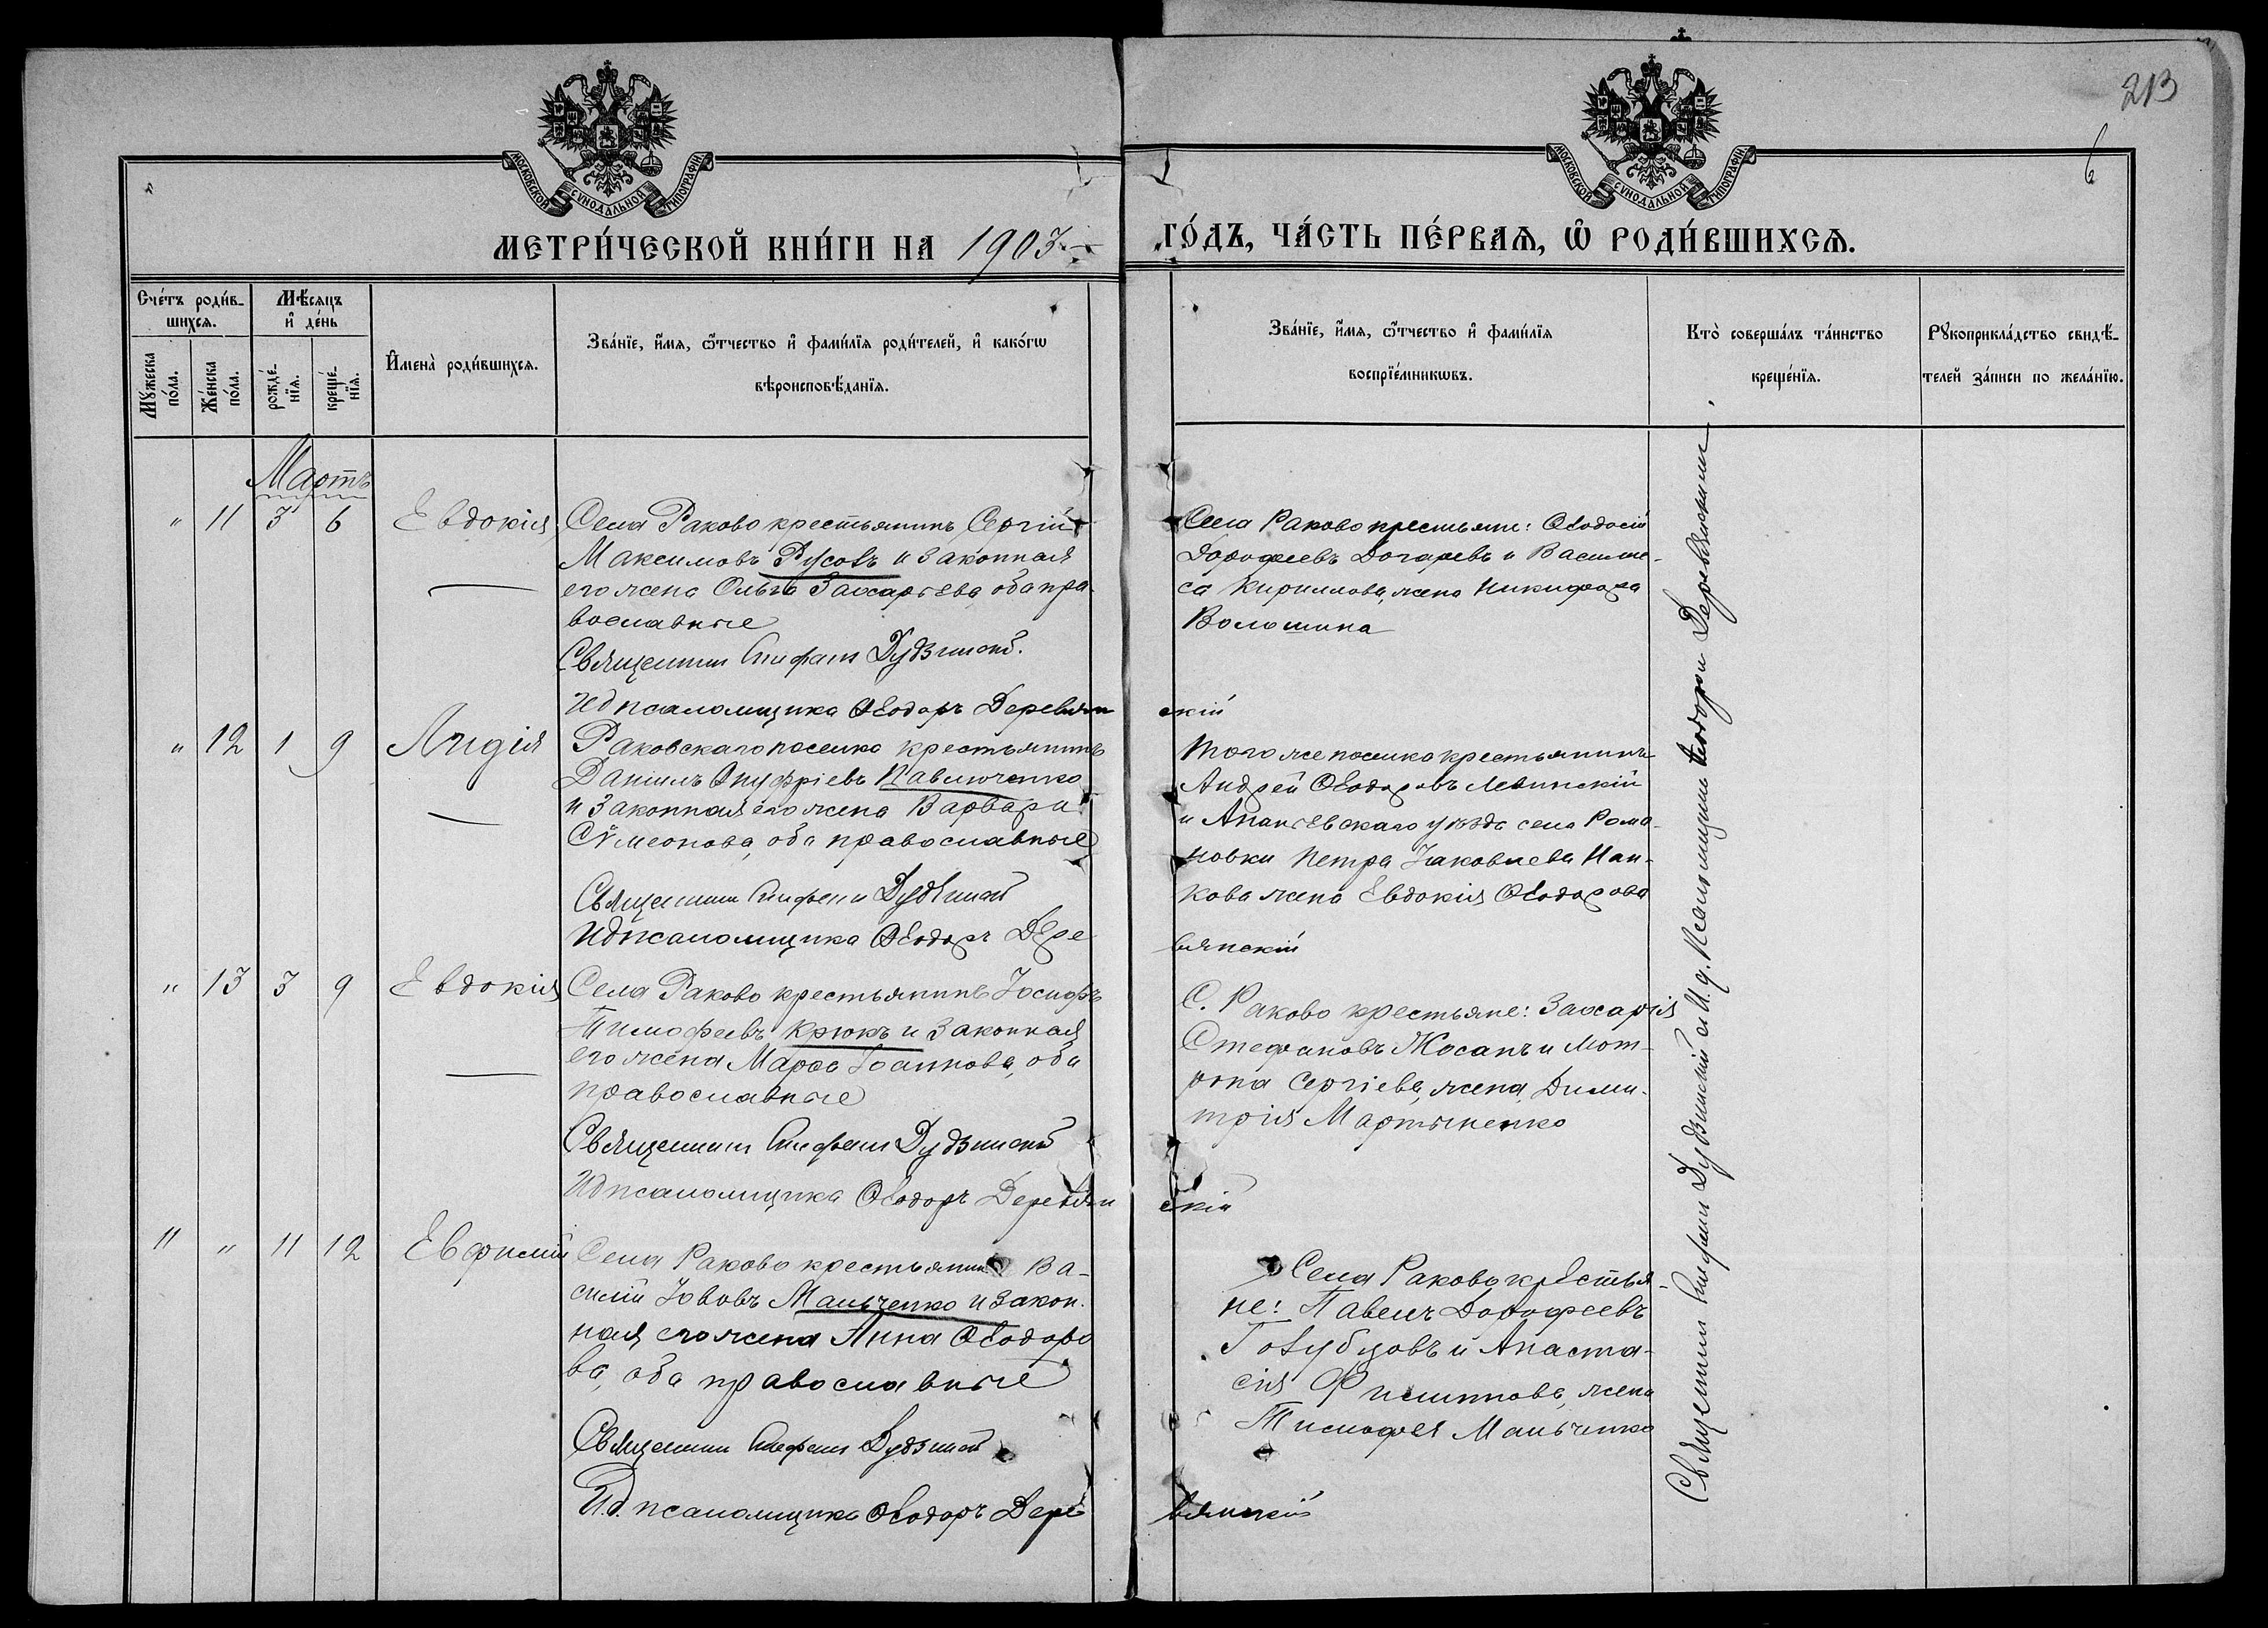 213
6
МОСКОВСКОЙ СѴНОДАЛЬНОЙ ТИПОГРАФІИ
МОСКОВСКОЙ СѴНОДАЛЬНОЙ ТИПОГРАФІИ
МЕТРИ́ЧЕСКОЙ КНИ́ГИ НА 1903
ГО́ДЪ, ЧА́СТЬ ПЕ́РВАѦ, Ѽ РОДИ́ВШИХСѦ.
Сче́тъ роди́в-
шихсѧ.
Мꙋ́жеска по́ла.
Же́нска по́ла.
Мѣ́сяцъ
и҆ де́нь
рожде́-нїѧ.
креще́-нїѧ.
И҆мена̀ роди́вшихсѧ.
Зва́нїе, и҆́мѧ, ѻ҆́тчество и҆ фами́лїѧ роди́телей, и҆ како́гѡ
вѣроисповѣ́данїѧ.
Зва́нїе, и҆́мѧ, ѻ҆́тчество и҆ фами́лїѧ
воспрїе́мникѡвъ.
Кто̀ соверша́лъ та́инство
креще́нїѧ.
Рꙋкоприкла́дство свидѣ́-
телей за́писи по жела́нїю.
Мартъ
" 11 3 6 Евдокія
Села Раково крестьянинъ Сергій
Максимовъ Русовъ и законная
его жена Ольга Захаріева, оба пра-
вославные
Священник Стефан Дудзинскій.
Ид псаломщика Ѳеодоръ Деревянскій
Села Раково крестьяне: Ѳеодосій
Дорофеевъ Догаревъ и Васили-
са Кириллова, жена Никифора
Волошина
" 12 1 9 Лидія
Раковскаго поселка крестьянинъ
Даніилъ Онуфріевъ Павлюченко
и законная его жена Варвара
Сѵмеонова, оба православные
Священник Стефан Дудзинскій
Ид псаломщика Ѳеодоръ Деревянскій
Того же поселка крестьянинъ
Андрей Ѳеодоровъ Левинскій
и Ананьевскаго уѣзда села Рома-
новки Петра Іаковлева
жена Евдокія Ѳеодорова
" 13 3 9 Евдокія
Села Раково крестьянинъ Іосифъ
Тимофеевъ Крюкъ и законная
его жена Марѳа Іоаннова, оба
православные
Священник Стефан Дудзинскій
Ид псаломщика Ѳеодоръ Деревянскій
С. Раково крестьяне: Захарія
Стефановъ Жосанъ и Мот-
рона Сергіева, жена Дими-
трія Мартыненко
11 " 11 12 Евфимій
Села Раково крестьянинъ Ва-
силій Іововъ Мальченко и закон-
ная его жена Анна Ѳеодоро
ва, оба православные
Священник Стефан Дудзинскій
И.д. псаломщика Ѳеодоръ Деревянскій
Села Раково крестья-
не: Павелъ Дорофеевъ
Голубцовъ и Анаста-
сія Филиппова, жена
Тимофея Мальченко
Священник Стефан Дудзинскій с И. д. Псаломщика Ѳеодоромъ Деревянскимъ.